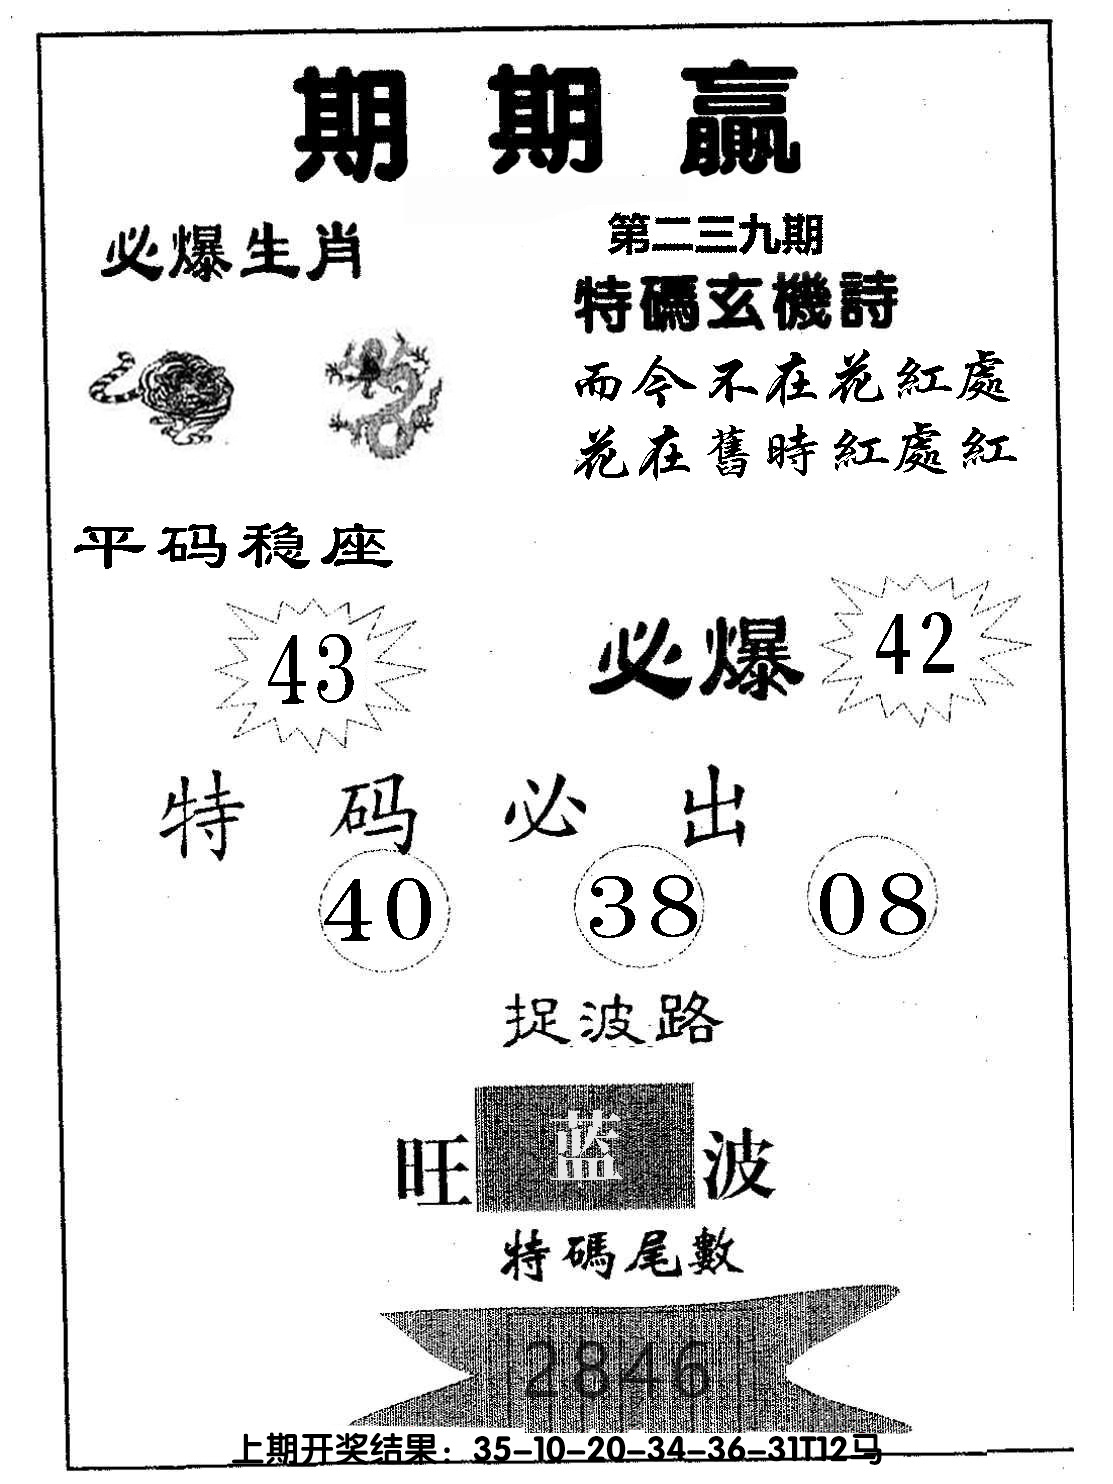 期期赢
必爆生肖
第二三九期
特碼玄機詩
而今不在花紅處
花在舊時紅處紅
平码稳座
43
必爆 42
特码必出
40 38 08
捉波路
旺 蓝 波
特碼尾數
2846
上期开奖结果：35-10-20-34-36-31T12马